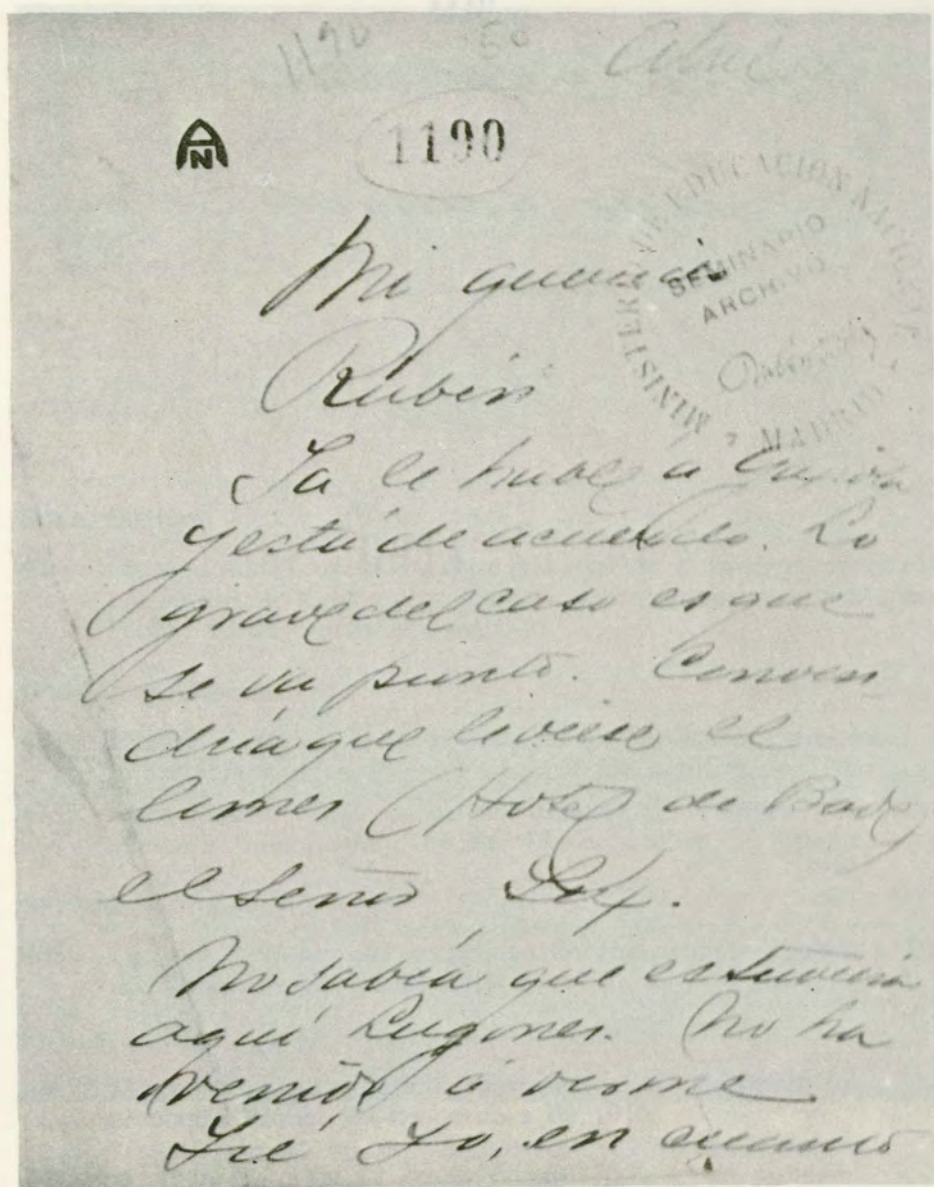 1190 50
AN
1190
MINISTERIO DE EDUCACION NACIONAL
SEMINARIO
ARCHIVO
Rubén Darío
MADRID
Mi querido
Rubén
Ya le hablé a
y está de acuerdo. Lo
grave del caso es que
se va pronto. Conven
dría que le viese el
lunes (Hotel de Bade)
el señor
No sabía que estuviera
aquí Lugones. No ha
venido á verme
Iré yo, en cuanto